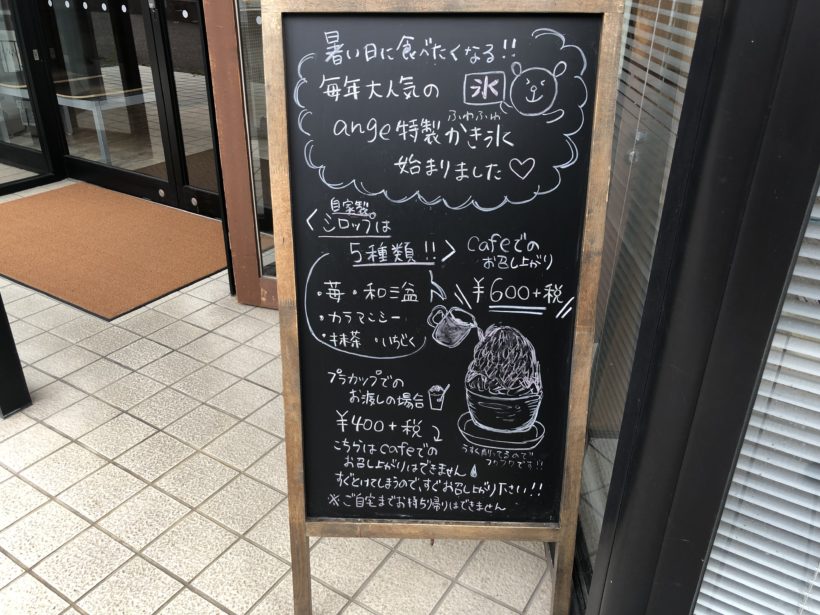 暑い日に食べたくなる!!
毎年大人気の 氷
ふわふわ
ange特製かき氷
始まりました♡
自家製。
<シロップは
5種類!!>
・苺・和三盆
・カラマンシー
・抹茶・いちじく
cafeでの
お召し上がり
¥600+税
プラカップでの
お渡しの場合
¥400+税
こちらはcafeでの
お召し上がりはできません
すぐとけてしまうので、すぐお召し上がり下さい!!
※ご自宅までお持ち帰りはできません
うすく削ってるので
フワフワです!!